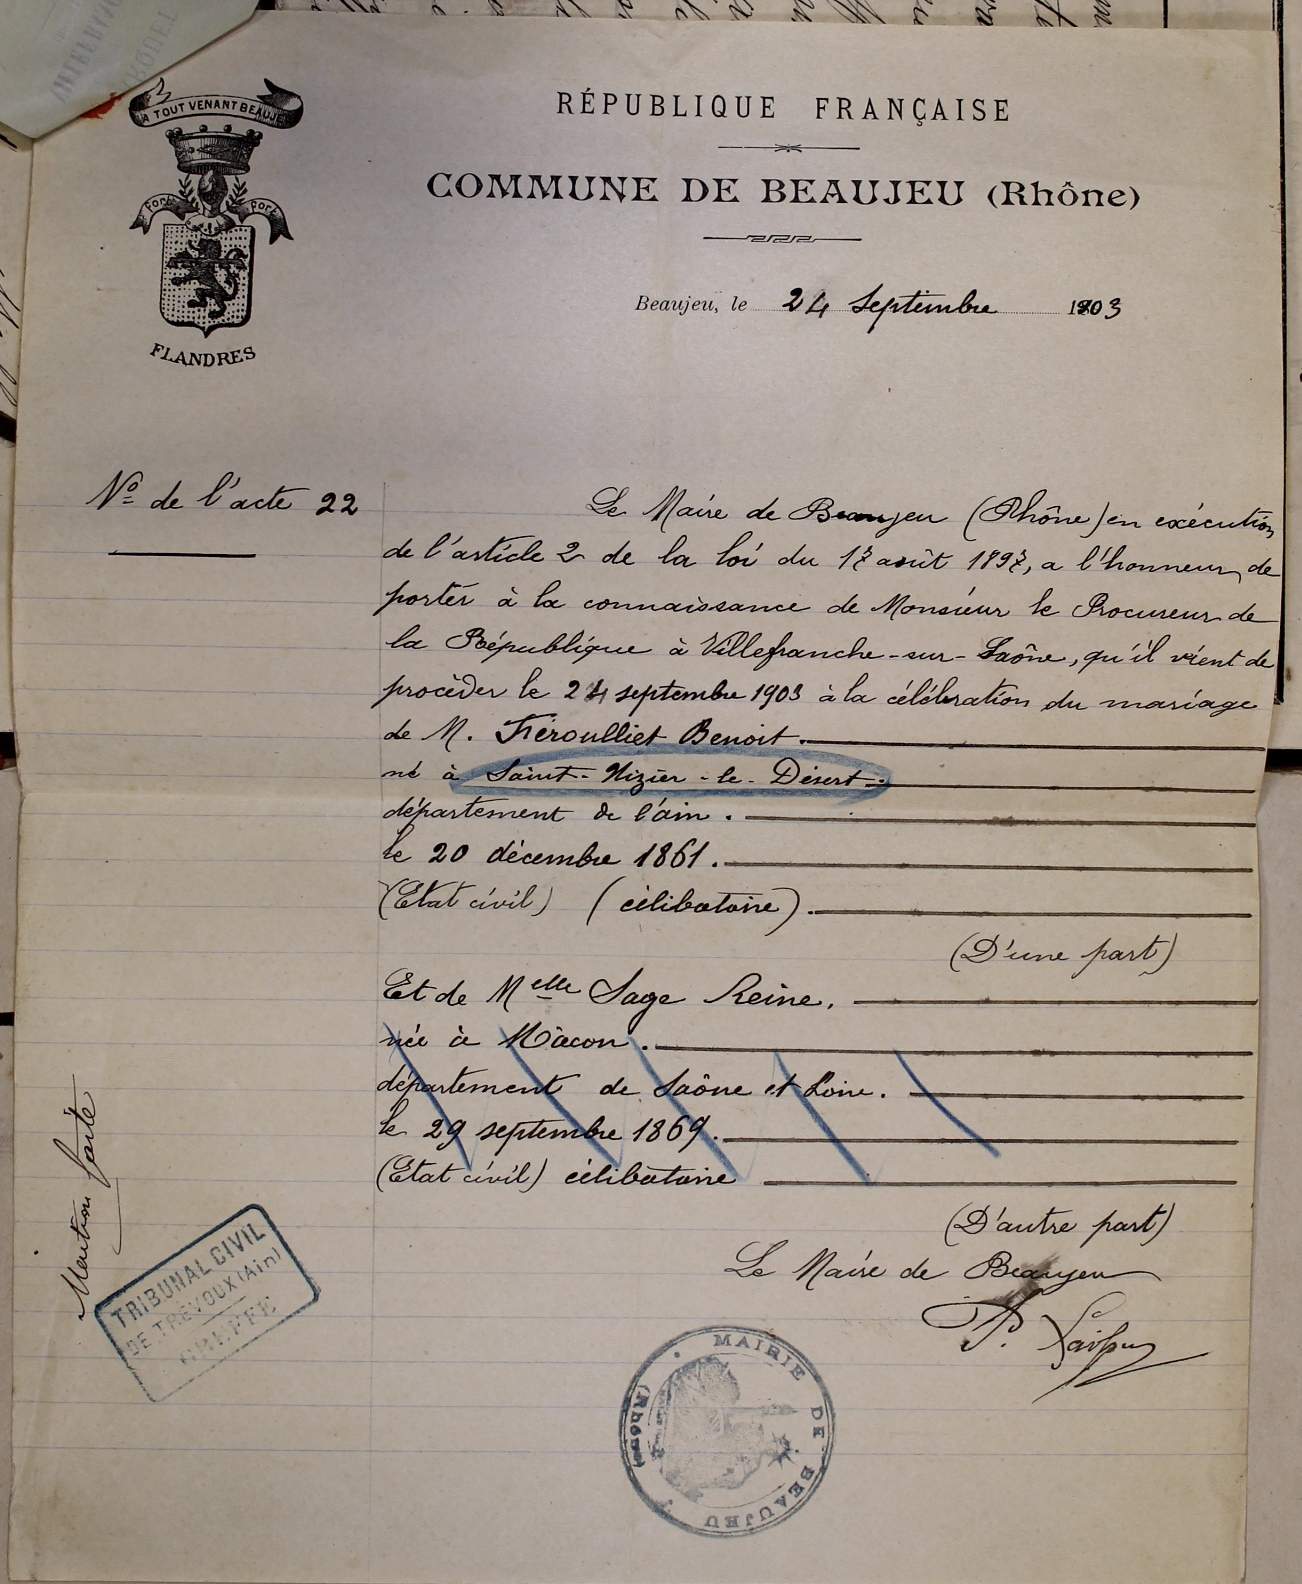 A TOUT VENANT BEAUJE
FORT
FORT
FLANDRES
RÉPUBLIQUE FRANÇAISE
COMMUNE DE BEAUJEU (Rhône)
Beaujeu, le 24 Septembre 1903
No de l'acte 22
Le Maire de Beaujeu (Rhône) en exécution
de l'article 2 de la loi du 17 août 1897, a l'honneur de
porter à la connaissance de Monsieur le Procureur de
la République à Villefranche-sur-Saône, qu'il vient de
procéder le 24 septembre 1903 à la célébration du mariage
de M. Benoit.
né à Saint-Nizier-le-Désert.
département de l'ain.
le 20 décembre 1861.
(Etat civil) (célibataire).
(D'une part)
Et de Melle Sage Reine.
née à Mâcon.
département de Saône et Loire.
le 29 septembre 1869.
(Etat civil) célibataire
(D'autre part)
Le Maire de Beaujeu
P.
Mention faite
TRIBUNAL CIVIL
DE TRÉVOUX (Ain)
GREFFE
MAIRIE DE BEAUJEU
(Rhône)